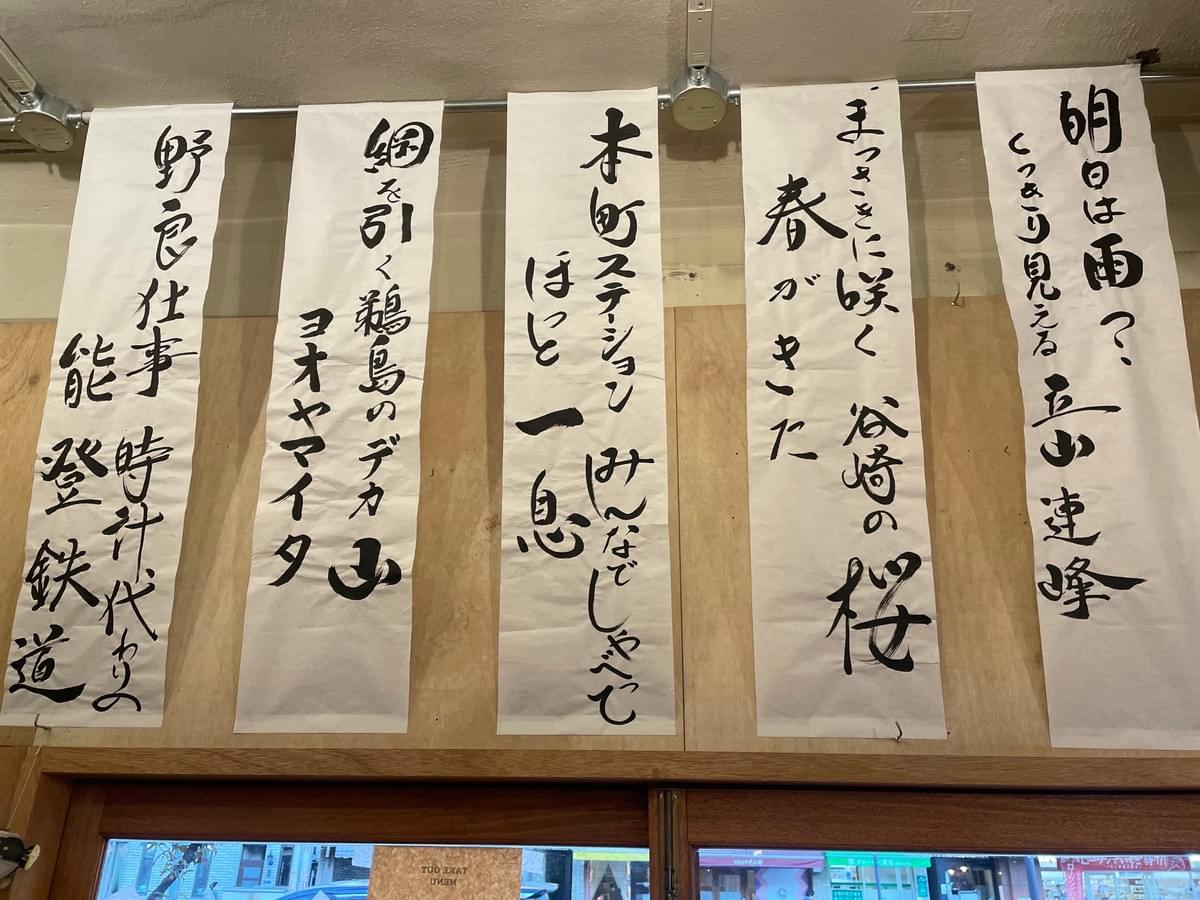 明日は雨?
くっきり見える 立山連峰
まっさきに咲く 谷崎の桜
春がきた
本町ステーション みんなでしゃべって
ほっと一息
綱を引く鵜島のデカ山
ヨオヤマイタ
野良仕事 時計代わりの
能登鉄道
TAKE OUT
MENU